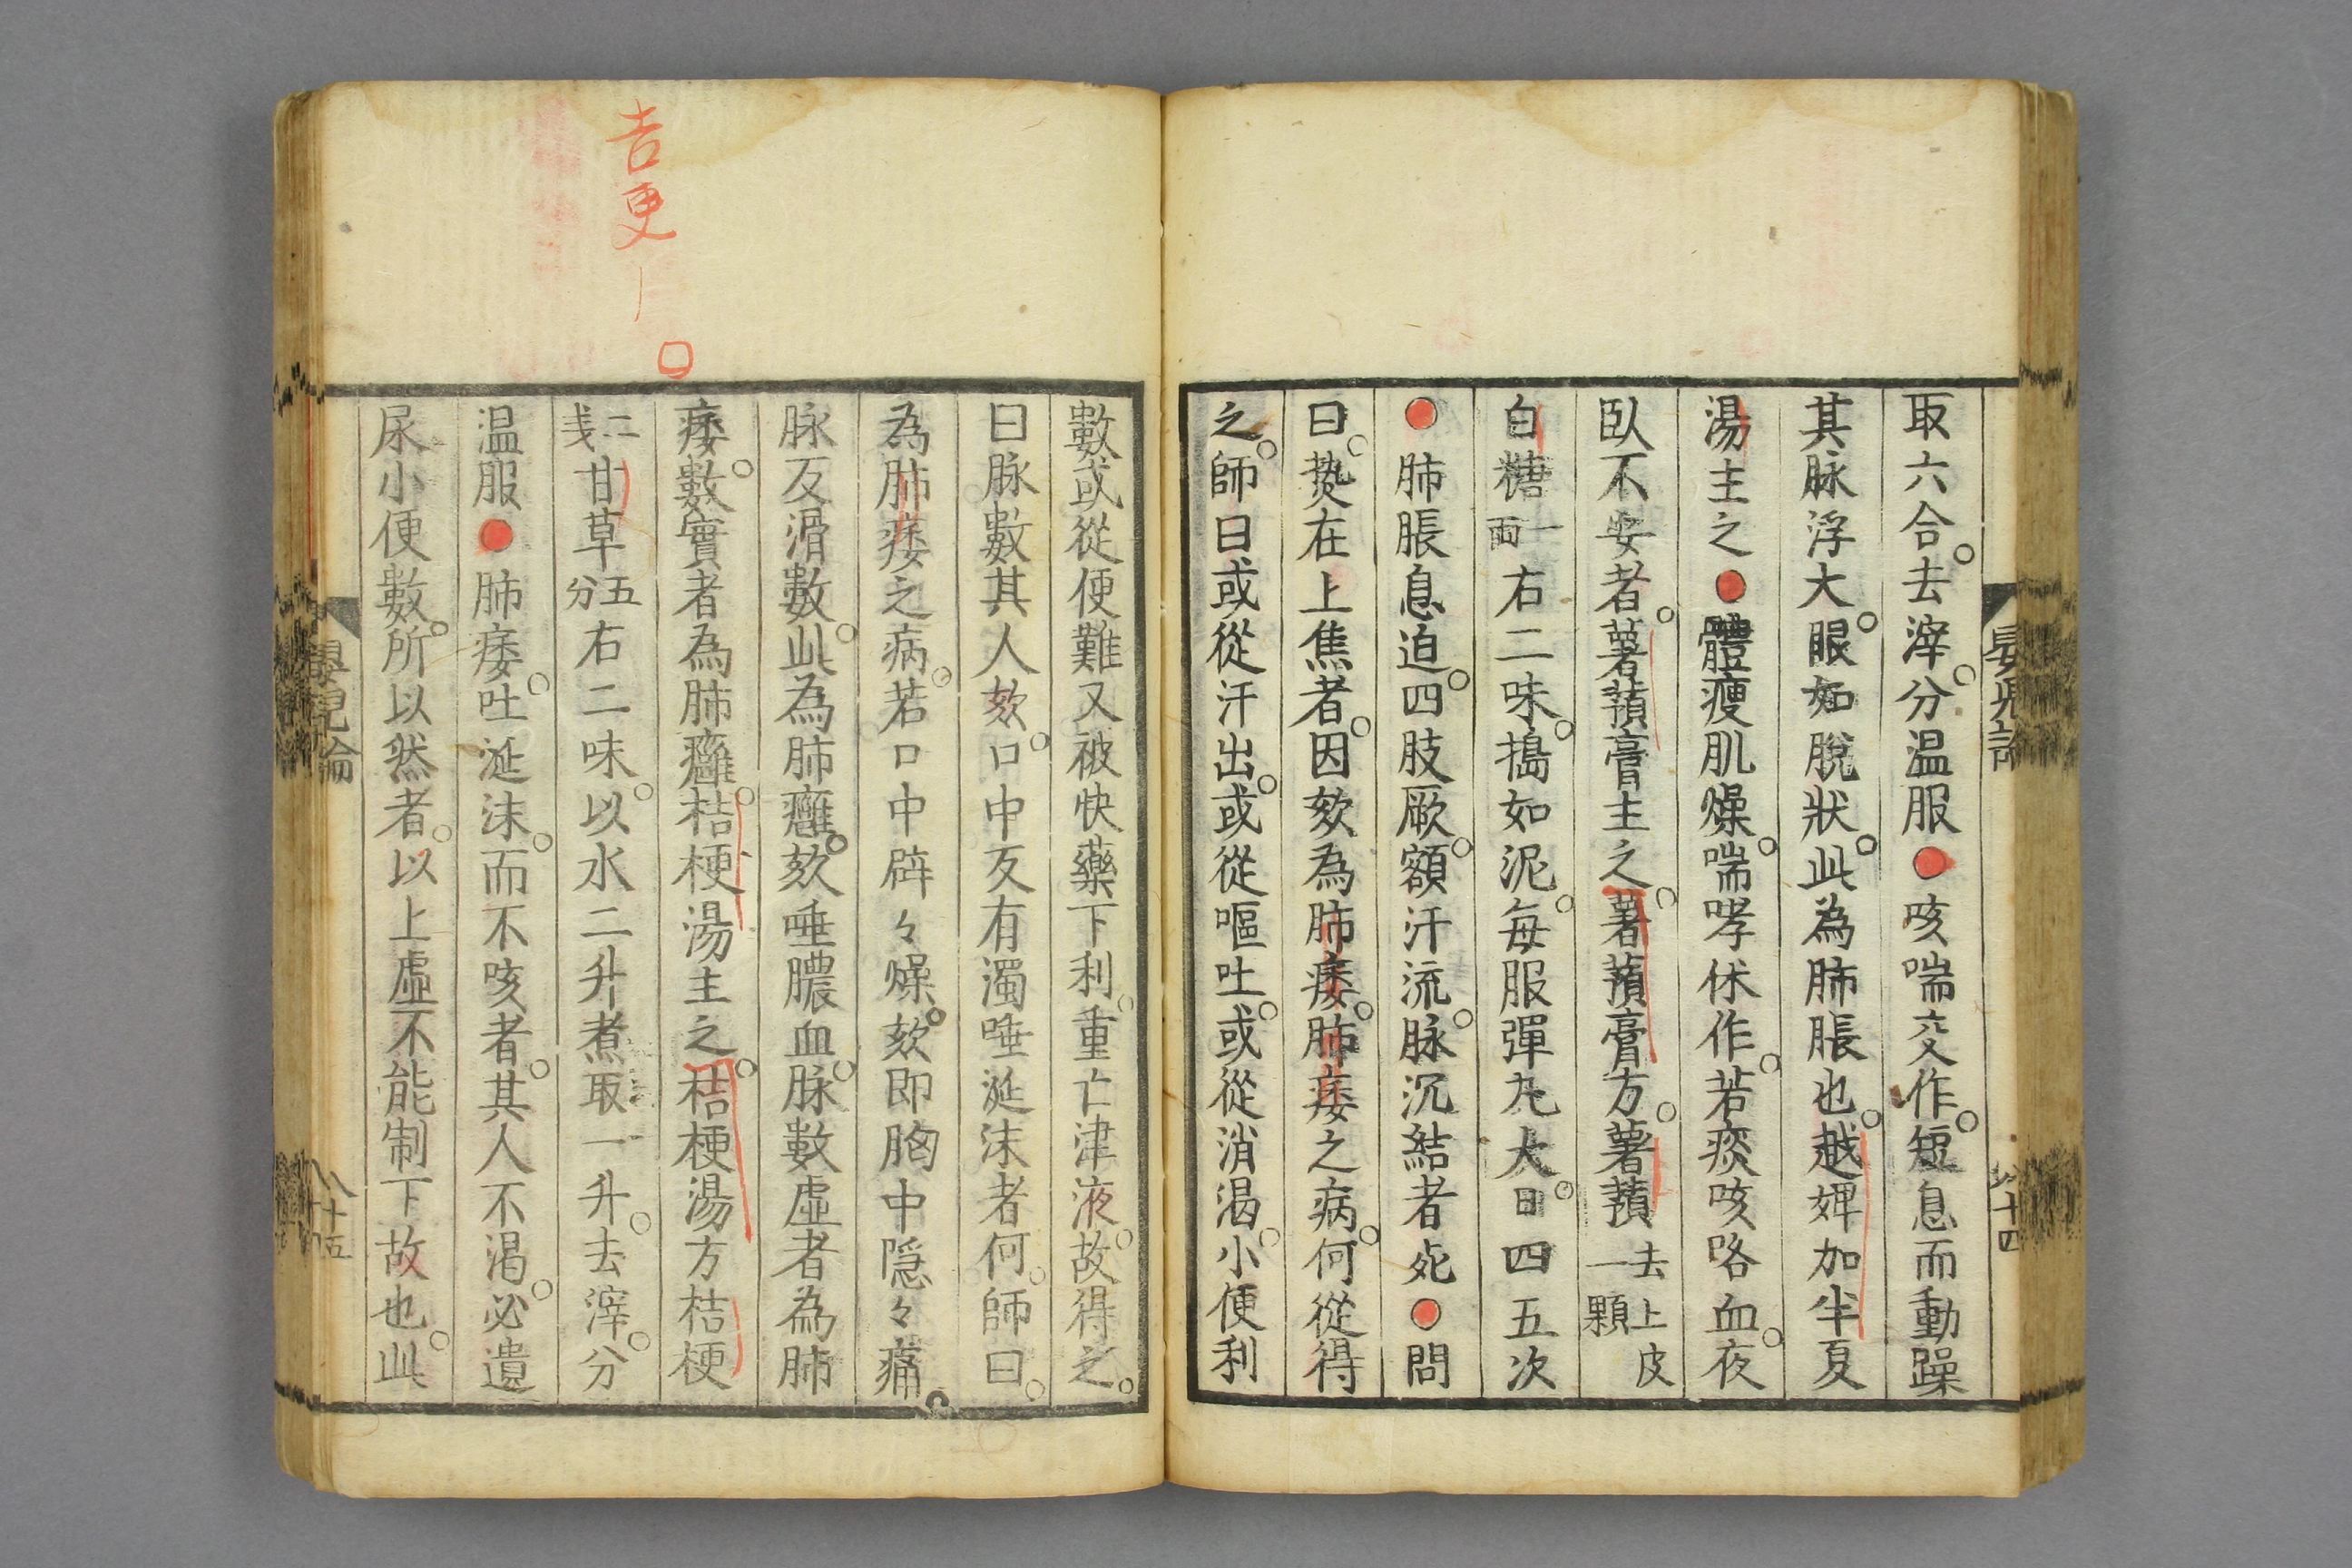 取六合。去滓。分温服●咳喘交作。短息而動躁
其脉浮大。眼如脫狀。此為肺脹也。越婢加半夏
湯主之●體瘦肌燥。喘哮休作。若痰咳咯血。夜
臥不安者。薯蕷膏主之。薯蕷膏方。薯蕷去上皮一顆
白糖一兩右二味。搗如泥。每服彈丸大。日四五次
●肺脹息迫。四肢厥。額汗流。脉沉結者死●問
曰。熱在上焦者。因欬為肺痿。肺痿之病。何從得
之。師曰或從汗出。或從嘔吐。或從消渴。小便利
數或從便難又被快藥下利。重亡津液。故得之。
曰脉數其人欬。口中反有濁唾涎沫者何。師曰。
為肺痿之病。若口中辟々燥。欬即胸中隱々痛。
脉反滑數。此為肺癰。欬唾膿血。脉數虛者為肺
痿。數實者為肺癰。桔梗湯主之。桔梗湯方桔梗
二戔甘草五分右二味。以水二升煮取一升。去滓。分
温服●肺痿。吐涎沫。而不咳者。其人不渴。必遺
尿小便數。所以然者。以上虛不能制下故也。此
嬰兒論
八十五
十四
吉更